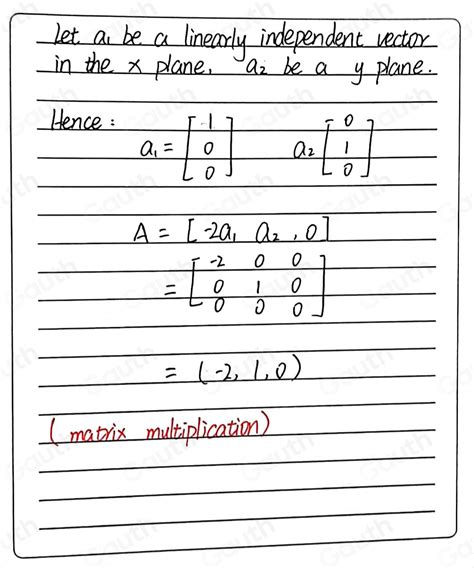 Let a₁ be a linearly independent vector
in the x plane, a₂ be a y plane.
Hence:
a₁ = [1 0 0] a₂ [0 1 0]
A = [-2a₁ a₂, 0]
= [-2 0 0
0 1 0
0 0 0]
= (-2, 1, 0)
(matrix multiplication)